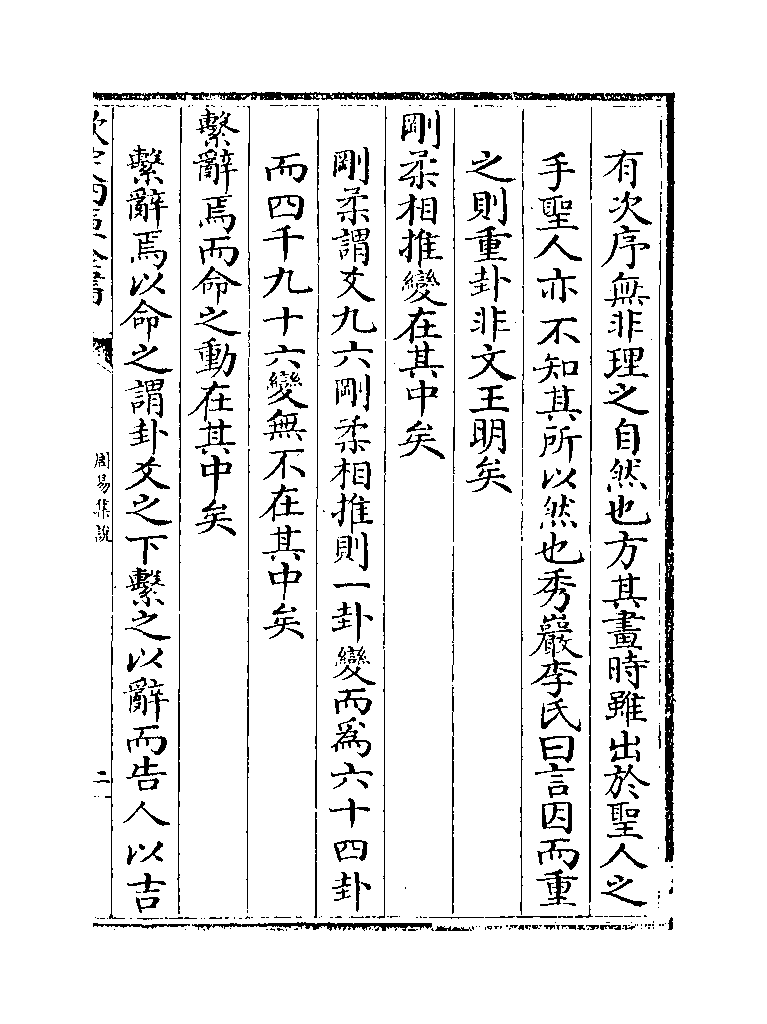 有次序無非理之自然也方其畫時雖出於聖人之
手聖人亦不知其所以然也秀巖李氏曰言因而重
之則重卦非文王明矣
剛柔相推變在其中矣
剛柔謂爻九六剛柔相推則一卦變而為六十四卦
而四千九十六變無不在其中矣
繫辭焉而命之動在其中矣
繫辭焉以命之謂卦爻之下繫之以辭而告人以吉
周易集說
二